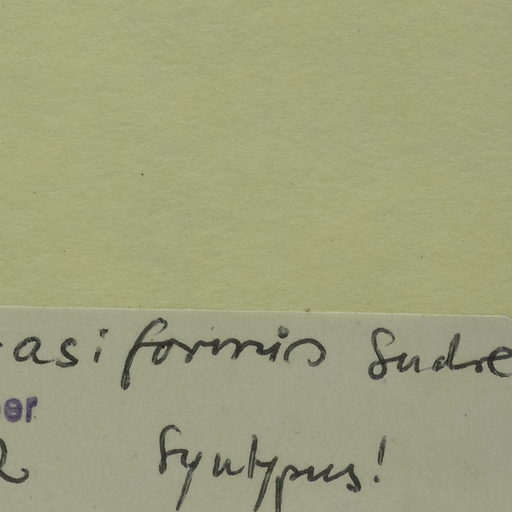 asiformis Sudre
er
Syntypus!